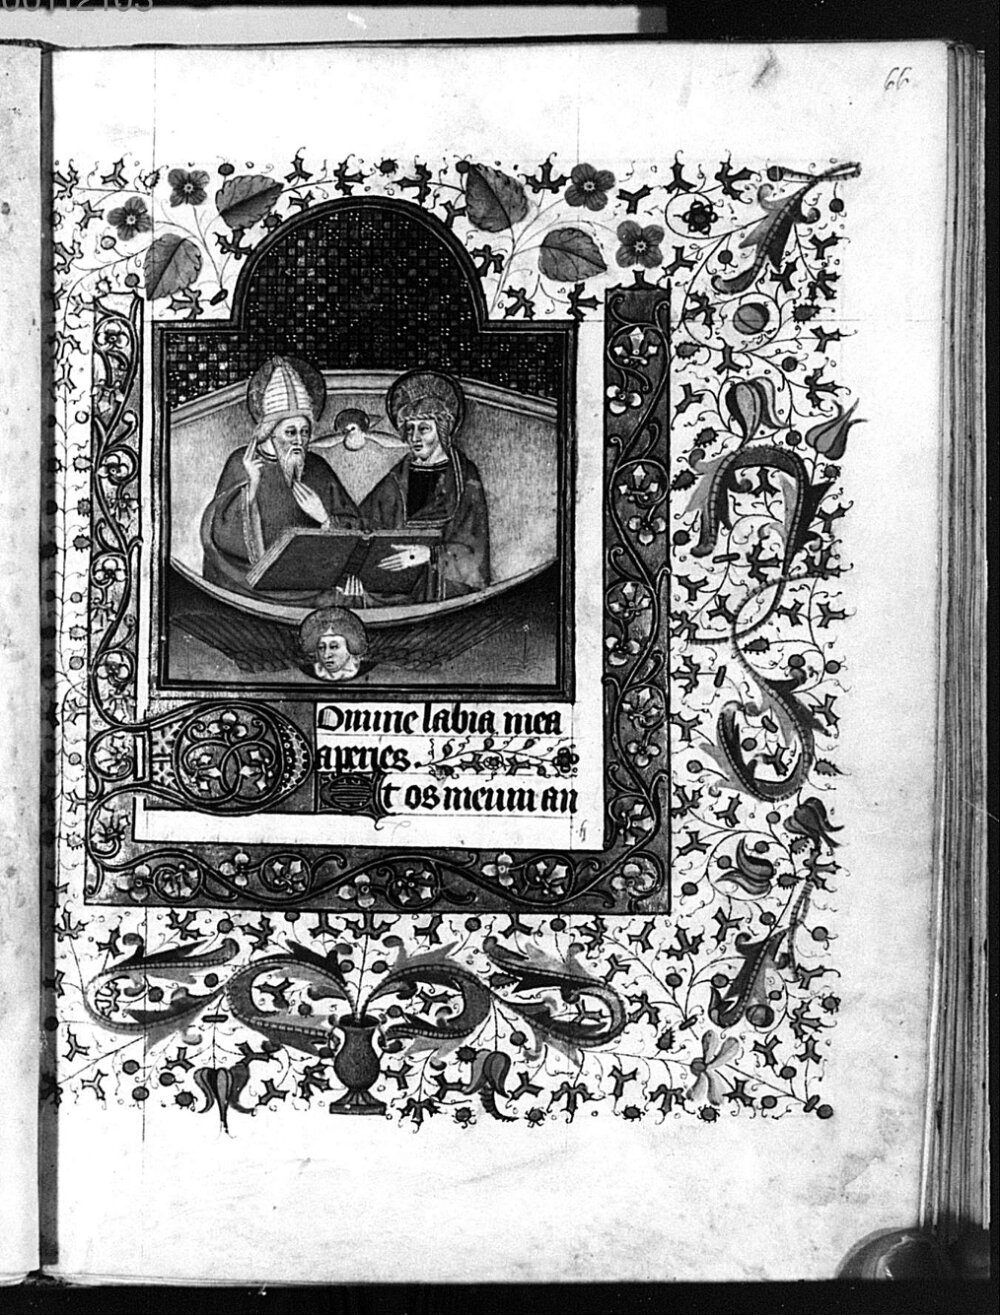 66
Domine labia mea
aperies.
Et os meum an